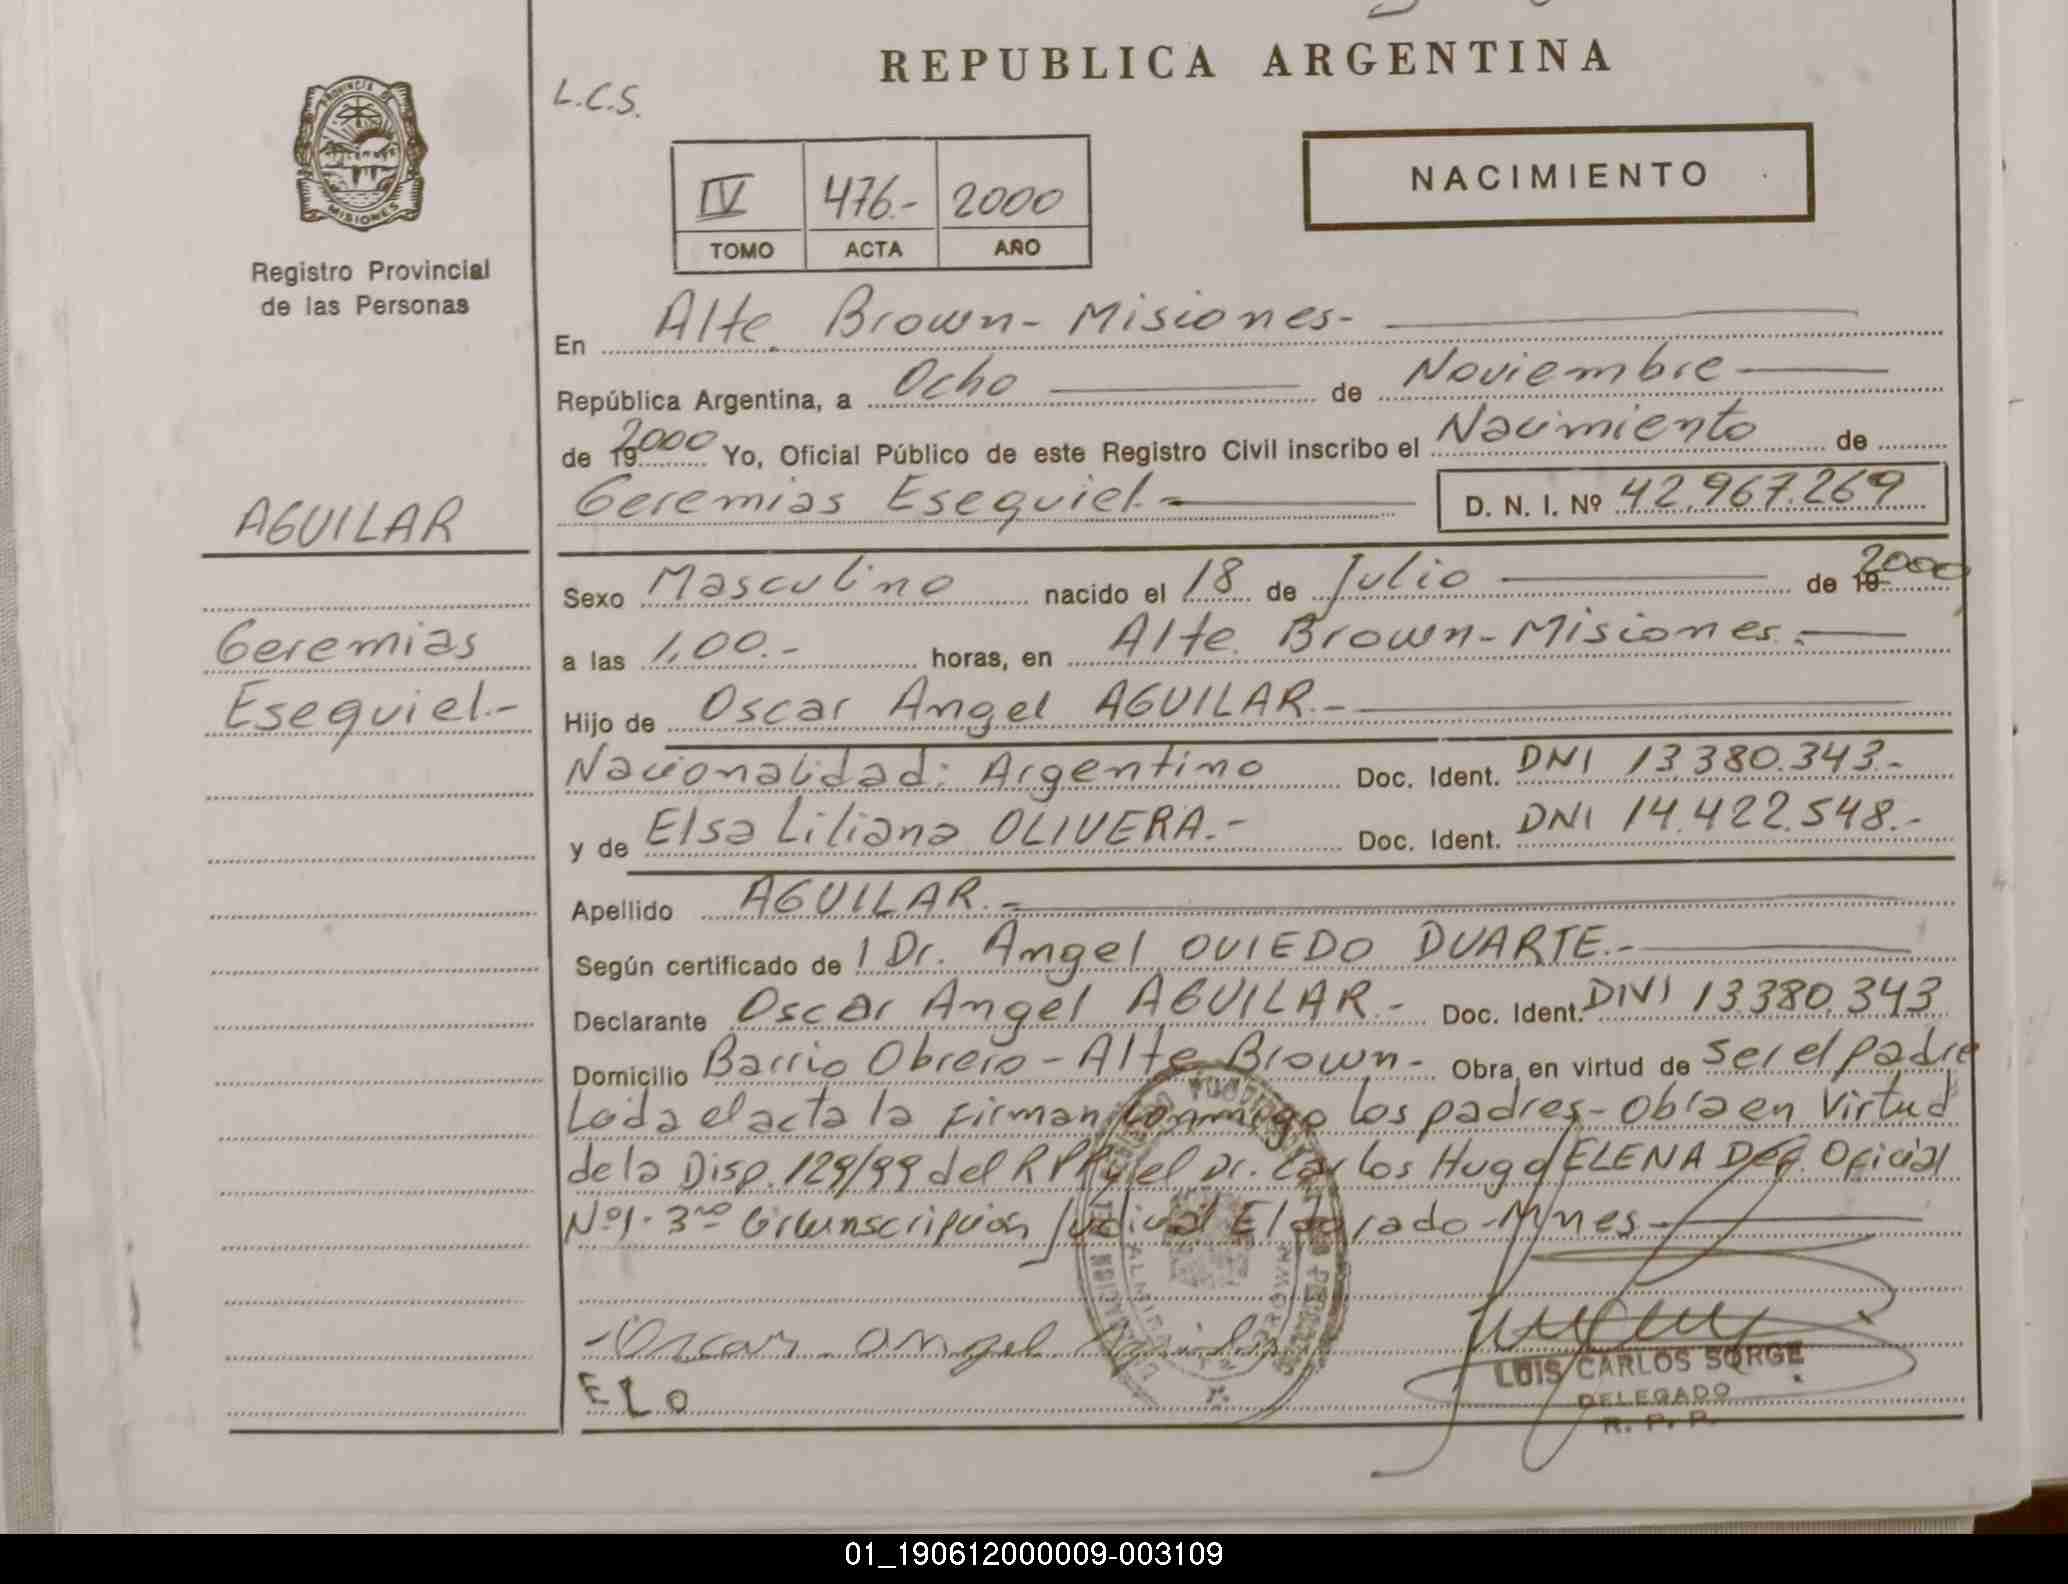 REPUBLICA ARGENTINA
L.C.S.
PROVINCIA DE
MISIONES
Registro Provincial
de las Personas
IV 476.- 2000
TOMO ACTA AÑO
NACIMIENTO
En Alte. Brown - Misiones -
República Argentina, a Ocho de Noviembre
de 19 2000 Yo, Oficial Público de este Registro Civil inscribo el Nacimiento de
Geremias Esequiel.- D. N. I. Nº 42.967.269
AGUILAR
Geremias
Esequiel.-
Sexo Masculino nacido el 18 de Julio de 19 2000
a las 1,00.- horas, en Alte. Brown - Misiones.-
Hijo de Oscar Angel AGUILAR.-
Nacionalidad: Argentino Doc. Ident. DNI 13.380.343.-
y de Elsa Liliana OLIVERA.- Doc. Ident. DNI 14.422.548.-
Apellido AGUILAR.-
Según certificado de 1 Dr. Angel OVIEDO DUARTE.-
Declarante Oscar Angel AGUILAR.- Doc. Ident. DNI 13.380.343
Domicilio Barrio Obrero - Alte Brown - Obra en virtud de ser el padre
Leida el acta la firman conmigo los padres - Obra en Virtud
de la Disp. 129/99 del RPP y el Dr. Carlos Hugo ELENA Def. Oficial
Nº1 - 3ra Circunscripción Judicial Eldorado - Mnes -
-Oscar. angel Aguilar
ELO
LUIS CARLOS SORGE
DELEGADO
R. P. P.
01_190612000009-003109